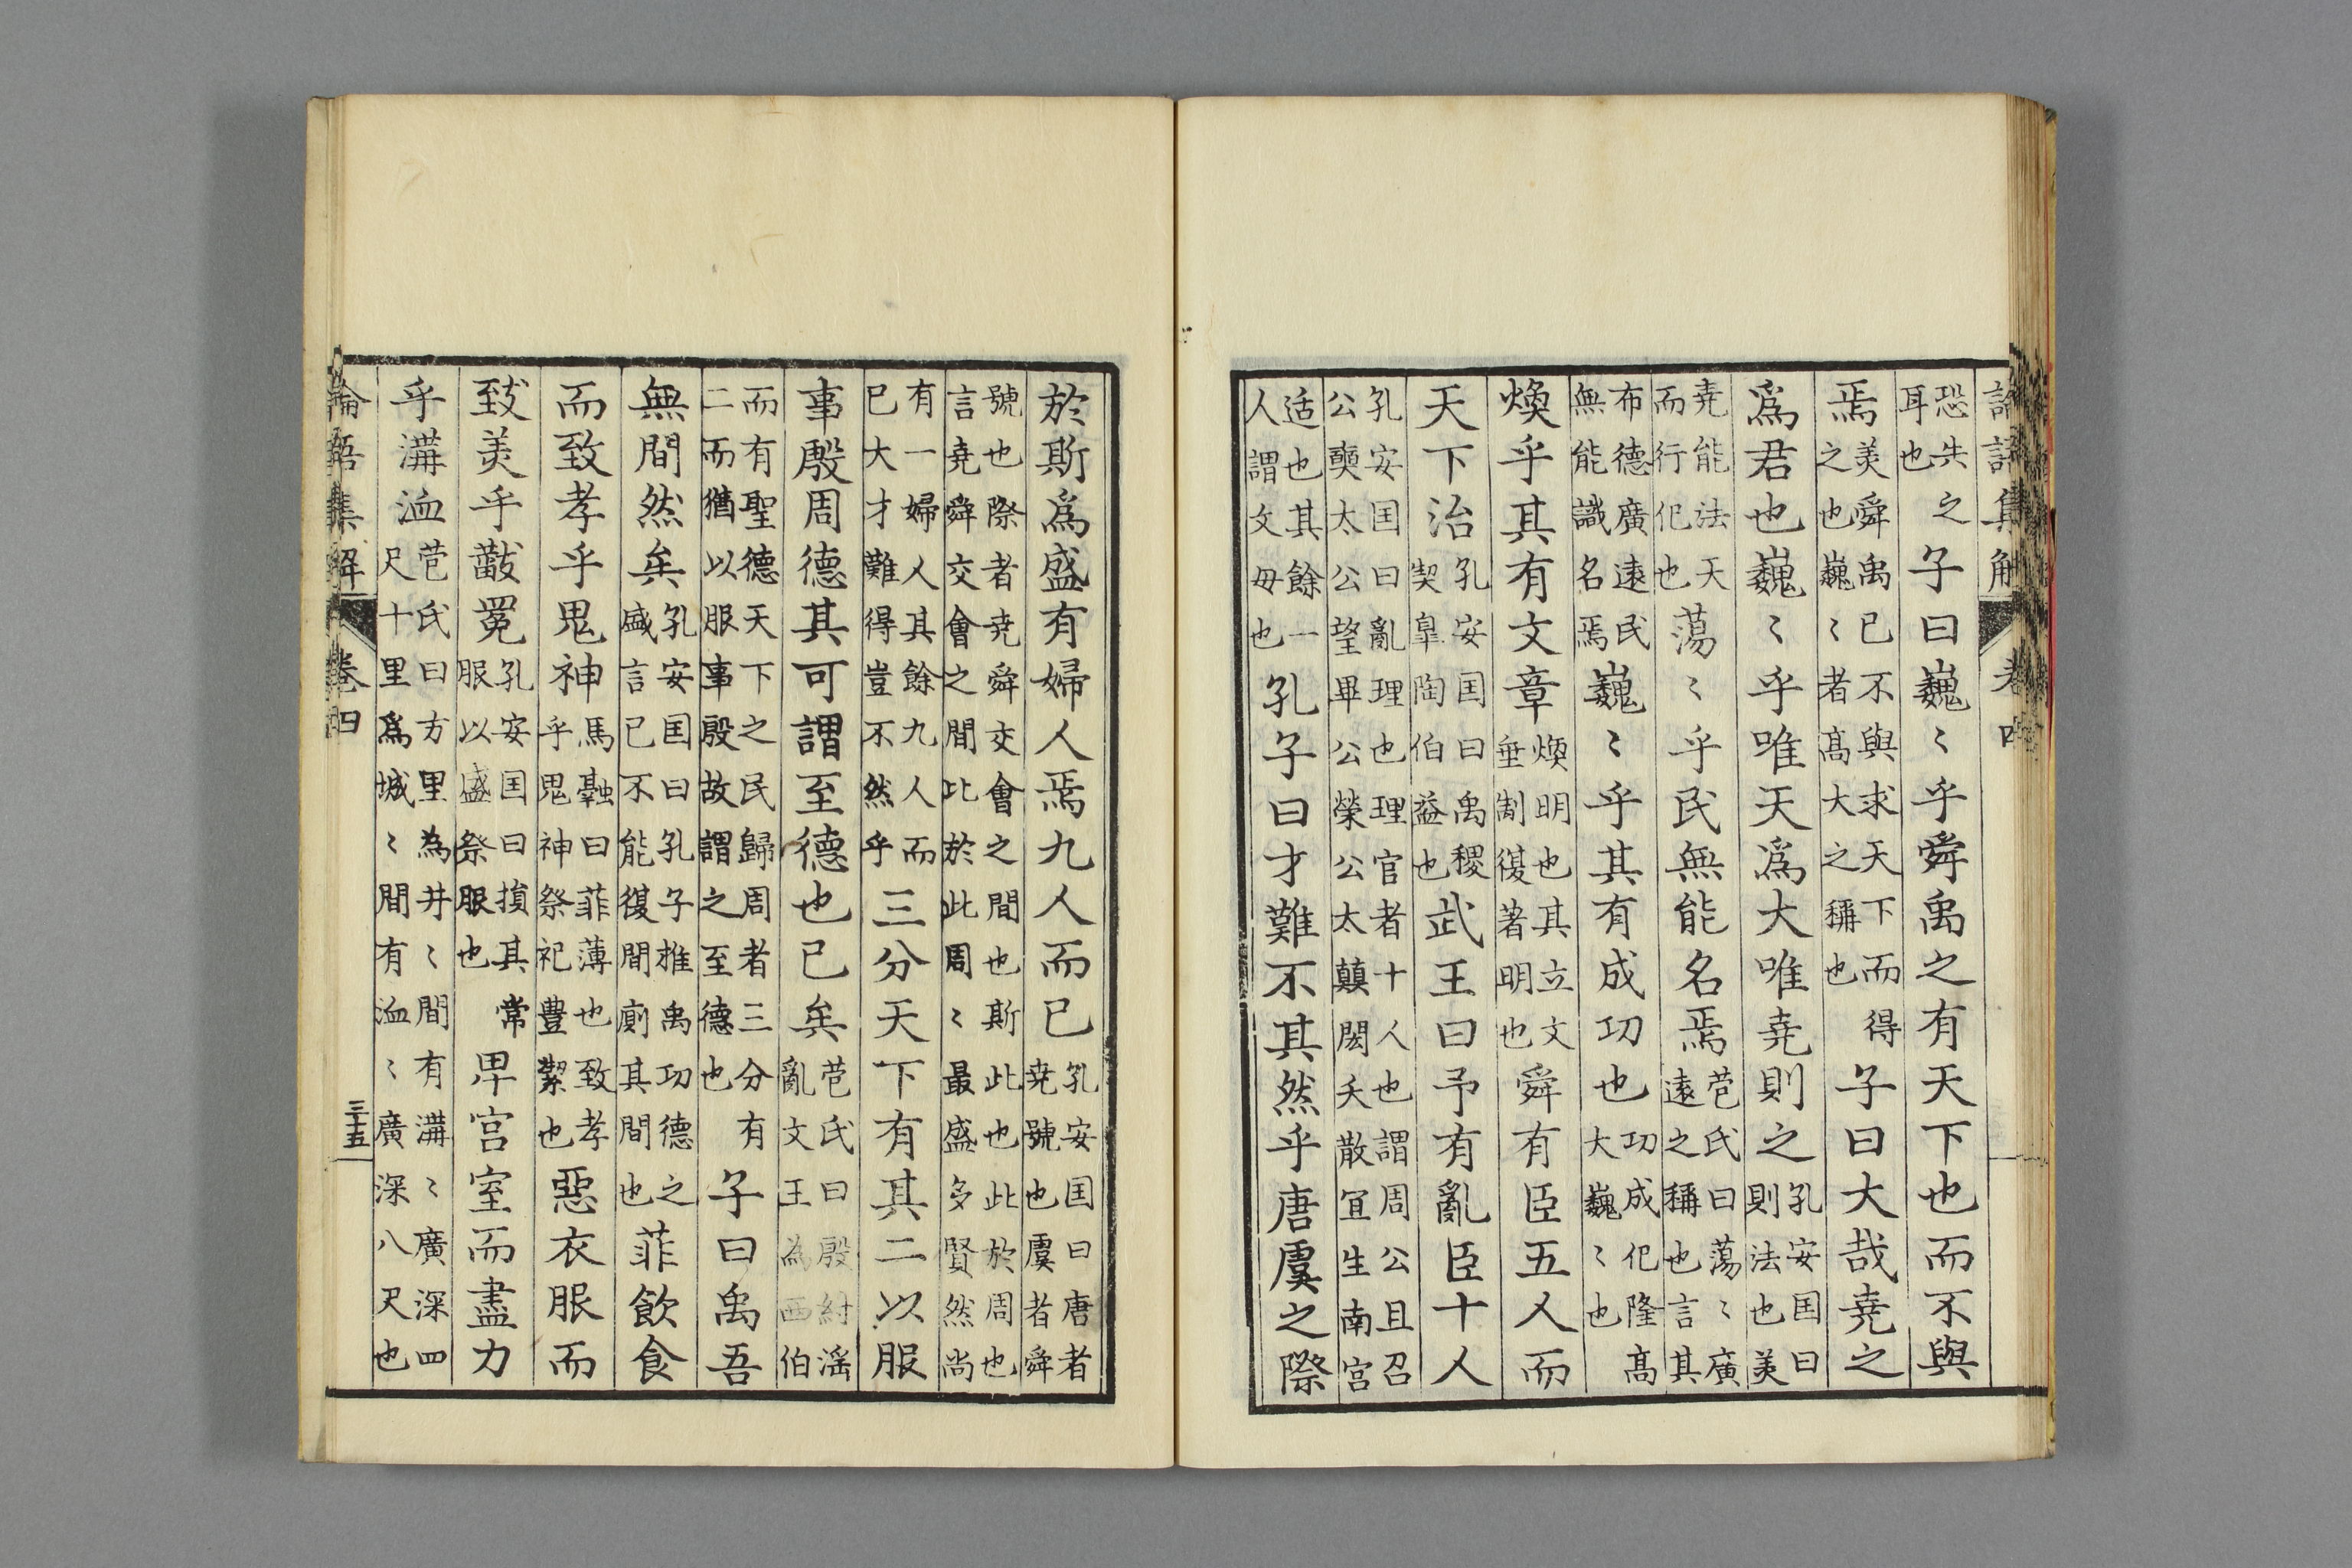 論語集解 卷四
恐失之耳也子曰巍〻乎舜禹之有天下也而不與
焉美舜禹已不與求天下而得之也巍〻者髙大之稱也子曰大哉堯之
爲君也巍〻乎唯天爲大唯堯則之孔安囯曰則法也美
堯能法天而行化也蕩〻乎民無能名焉苞氏曰蕩〻廣遠之稱也言其
布德廣遠民無能識名焉巍〻乎其有成功也功成化隆髙大巍〻也
煥乎其有文章煥明也其立文垂制復著明也舜有臣五人而
天下治孔安囯曰禹稷契皐陶伯益也武王曰予有亂臣十人
孔安囯曰亂理也理官者十人也謂周公旦召公奭太公望畢公榮公太顛閎夭散宜生南宮
适也其餘一人謂文母也孔子曰才難不其然乎唐虞之際
於斯爲盛有婦人焉九人而已孔安囯曰唐者堯號也虞者舜
號也際者堯舜交會之間也斯此也此於周也言堯舜交會之間比於此周〻最盛多賢然尚
有一婦人其餘九人而已大才難得豈不然乎三分天下有其二以服
事殷周德其可謂至德也已矣苞氏曰殷紂淫亂文王為西伯
而有聖德天下之民歸周者三分有二而猶以服事殷故謂之至德也子曰禹吾
無間然矣孔安囯曰孔子推禹功德之盛言已不能復間廁其間也菲飲食
而致孝乎鬼神馬融曰菲薄也致孝乎鬼神祭祀豐絜也惡衣服而
致美乎黻冕孔安囯曰損其常服以盛祭服也卑宮室而盡力
乎溝洫苞氏曰方里為井〻間有溝〻廣深四尺十里爲城〻間有洫〻廣深八尺也
論語集解 卷四 三十五